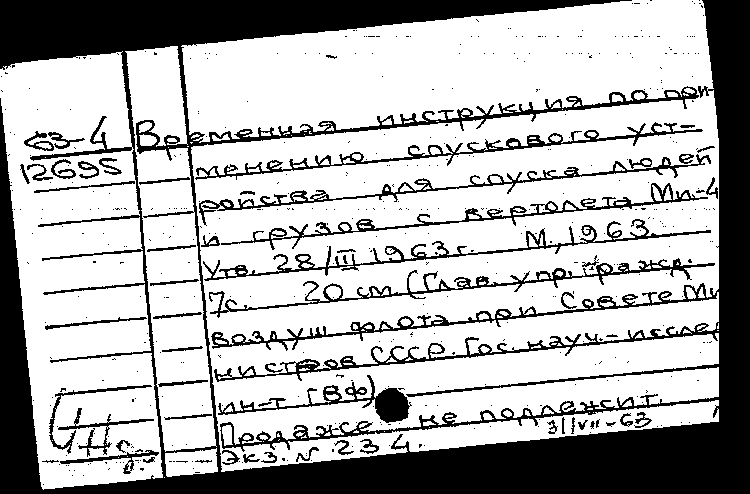 63-4
12695
Временная инструкция по при-
менению спускового уст-
ройства для спуска людей
и грузов с вертолета Ми-4
Утв. 28/III 1963 г. М., 1963.
7с. 20 см (Глав. упр. гражд.
воздуш флота при Совете Ми
нистров СССР. Гос. науч.-исслед
ин-т ГВФ)
Продаже не подлежит.
Экз. N 234.
3/VII-63